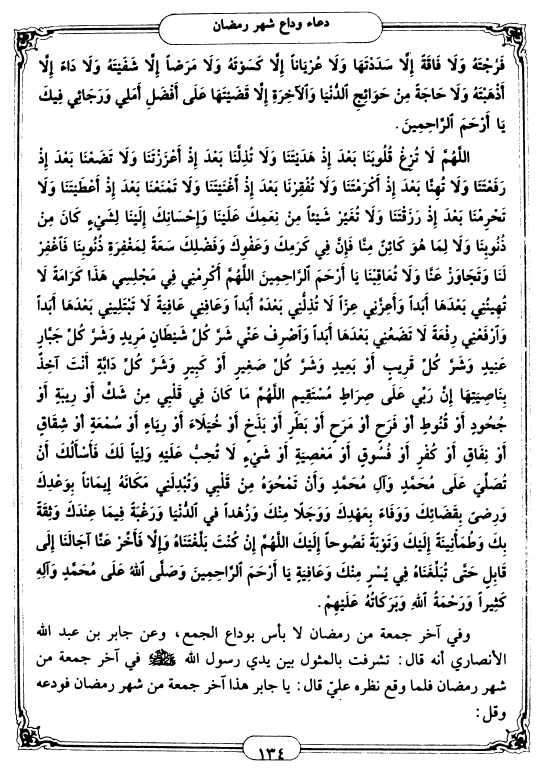 دعاء وداع شهر رمضان
فَرَّجْتَهُ وَلَا فَاقَةً إِلَّا سَدَدْتَهَا وَلَا عُرْيَاناً إِلَّا كَسَوْتَهُ وَلَا مَرَضاً إِلَّا شَفَيْتَهُ وَلَا دَاءً إِلَّا
أَذْهَبْتَهُ وَلَا حَاجَةً مِنْ حَوَائِجِ ٱلدُّنْيَا وَٱلآخِرَةِ إِلَّا قَضَيْتَهَا عَلَى أَفْضَلِ أَمَلِي وَرَجَائِي فِيكَ
يَا أَرْحَمَ ٱلرَّاحِمِينَ.
اللَّهُمَّ لَا تُزِغْ قُلُوبَنَا بَعْدَ إِذْ هَدَيْتَنَا وَلَا تُذِلَّنَا بَعْدَ إِذْ أَعْزَزْتَنَا وَلَا تَضَعْنَا بَعْدَ إِذْ
رَفَعْتَنَا وَلَا تُهِنَّا بَعْدَ إِذْ أَكْرَمْتَنَا وَلَا تُفْقِرْنَا بَعْدَ إِذْ أَغْنَيْتَنَا وَلَا تَمْنَعْنَا بَعْدَ إِذْ أَعْطَيْتَنَا وَلَا
تَحْرِمْنَا بَعْدَ إِذْ رَزَقْتَنَا وَلَا تُغَيِّرْ شَيْئاً مِنْ نِعَمِكَ عَلَيْنَا وَإِحْسَانِكَ إِلَيْنَا لِشَيْءٍ كَانَ مِنْ
ذُنُوبِنَا وَلَا لِمَا هُوَ كَائِنٌ مِنَّا فَإِنَّ فِي كَرَمِكَ وَعَفْوِكَ وَفَضْلِكَ سَعَةً لِمَغْفِرَةِ ذُنُوبِنَا فَٱغْفِرْ
لَنَا وَتَجَاوَزْ عَنَّا وَلَا تُعَاقِبْنَا يَا أَرْحَمَ ٱلرَّاحِمِينَ اللَّهُمَّ أَكْرِمْنِي فِي مَجْلِسِي هَذَا كَرَامَةً لَا
تُهِينُنِي بَعْدَهَا أَبَداً وَأَعِزَّنِي عِزّاً لَا تُذِلُّنِي بَعْدَهُ أَبَداً وَعَافِنِي عَافِيَةً لَا تَبْتَلِينِي بَعْدَهَا أَبَداً
وَٱرْفَعْنِي رِفْعَةً لَا تَضَعُنِي بَعْدَهَا أَبَداً وَٱصْرِفْ عَنِّي شَرَّ كُلِّ شَيْطَانٍ مَرِيدٍ وَشَرَّ كُلِّ جَبَّارٍ
عَنِيدٍ وَشَرَّ كُلِّ قَرِيبٍ أَوْ بَعِيدٍ وَشَرَّ كُلِّ صَغِيرٍ أَوْ كَبِيرٍ وَشَرَّ كُلِّ دَابَّةٍ أَنْتَ آخِذٌ
بِنَاصِيَتِهَا إِنَّ رَبِّي عَلَى صِرَاطٍ مُسْتَقِيمٍ اللَّهُمَّ مَا كَانَ فِي قَلْبِي مِنْ شَكٍّ أَوْ رِيبَةٍ أَوْ
جُحُودٍ أَوْ قُنُوطٍ أَوْ فَرَحٍ أَوْ مَرَحٍ أَوْ بَطَرٍ أَوْ بَذَخٍ أَوْ خُيَلَاءَ أَوْ رِيَاءٍ أَوْ سُمْعَةٍ أَوْ شِقَاقٍ
أَوْ نِفَاقٍ أَوْ كُفْرٍ أَوْ فُسُوقٍ أَوْ مَعْصِيَةٍ أَوْ شَيْءٍ لَا تُحِبُّ عَلَيْهِ وَلِيّاً لَكَ فَأَسْأَلُكَ أَنْ
تُصَلِّيَ عَلَى مُحَمَّدٍ وَآلِ مُحَمَّدٍ وَأَنْ تَمْحُوَهُ مِنْ قَلْبِي وَتُبْدِلَنِي مَكَانَهُ إِيمَاناً بِوَعْدِكَ
وَرِضىً بِقَضَائِكَ وَوَفَاءً بِعَهْدِكَ وَوَجَلًا مِنْكَ وَزُهْداً فِي ٱلدُّنْيَا وَرَغْبَةً فِيمَا عِنْدَكَ وَثِقَةً
بِكَ وَطُمَأْنِينَةً إِلَيْكَ وَتَوْبَةً نَصُوحاً إِلَيْكَ اللَّهُمَّ إِنْ كُنْتَ بَلَّغْتَنَاهُ وَإِلَّا فَأَخِّرْ عَنَّا آجَالَنَا إِلَى
قَابِلٍ حَتَّى تُبَلِّغَنَاهُ فِي يُسْرٍ مِنْكَ وَعَافِيَةٍ يَا أَرْحَمَ ٱلرَّاحِمِينَ وَصَلَّى ٱللهُ عَلَى مُحَمَّدٍ وَآلِهِ
كَثِيراً وَرَحْمَةُ ٱللهِ وَبَرَكَاتُهُ عَلَيْهِمْ.
وفي آخر جمعة من رمضان لا بأس بوداع الجمع، وعن جابر بن عبد الله
الأنصاري أنه قال: تشرفت بالمثول بين يدي رسول الله ﷺ في آخر جمعة من
شهر رمضان فلما وقع نظره عليّ قال: يا جابر هذا آخر جمعة من شهر رمضان فودعه
وقل:
١٣٤